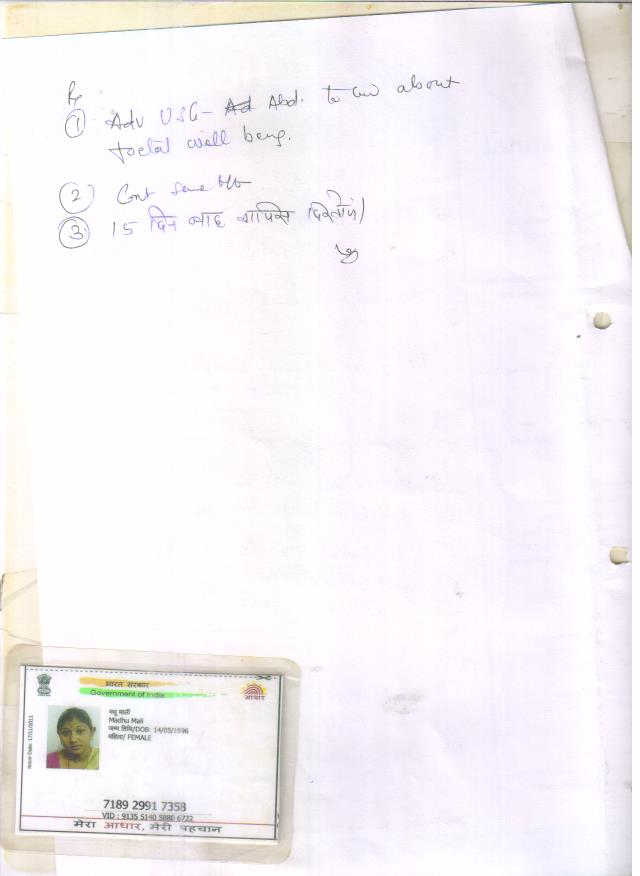 Rx
① Adv USG - Ad Abd. to know about
foetal well being.
② Cont same
③ 15 दिन बाद वापिस दिखायें।
भारत सरकार
Government of India
आधार
Issue Date: 17/11/2011
मधु माली
Madhu Mali
जन्म तिथि/DOB: 14/05/1996
महिला/ FEMALE
7189 2991 7358
VID : 9135 5140 5880 6722
मेरा आधार, मेरी पहचान